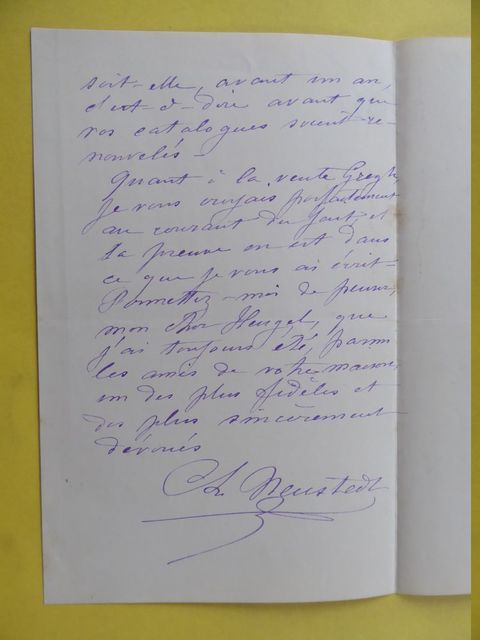 soit-elle, avant un an,
c'est-à-dire avant que
vos catalogues soient re-
nouvelés -
Quant à la vente Gregh,
Je vous croyais parfaitement
au courant du fait et
la preuve en est dans
ce que je vous ai écrit -
Permettez-moi de penser,
mon cher Heugel, que
j'ai toujours été, parmi
les amis de votre maison,
un des plus fidèles et
des plus sincèrement
dévoués
Ch Neustedt